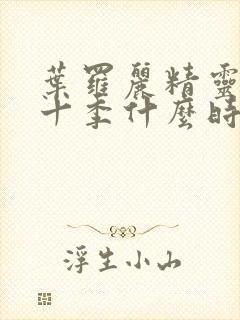 葉羅麗精靈
十季什麼時
浮生小山